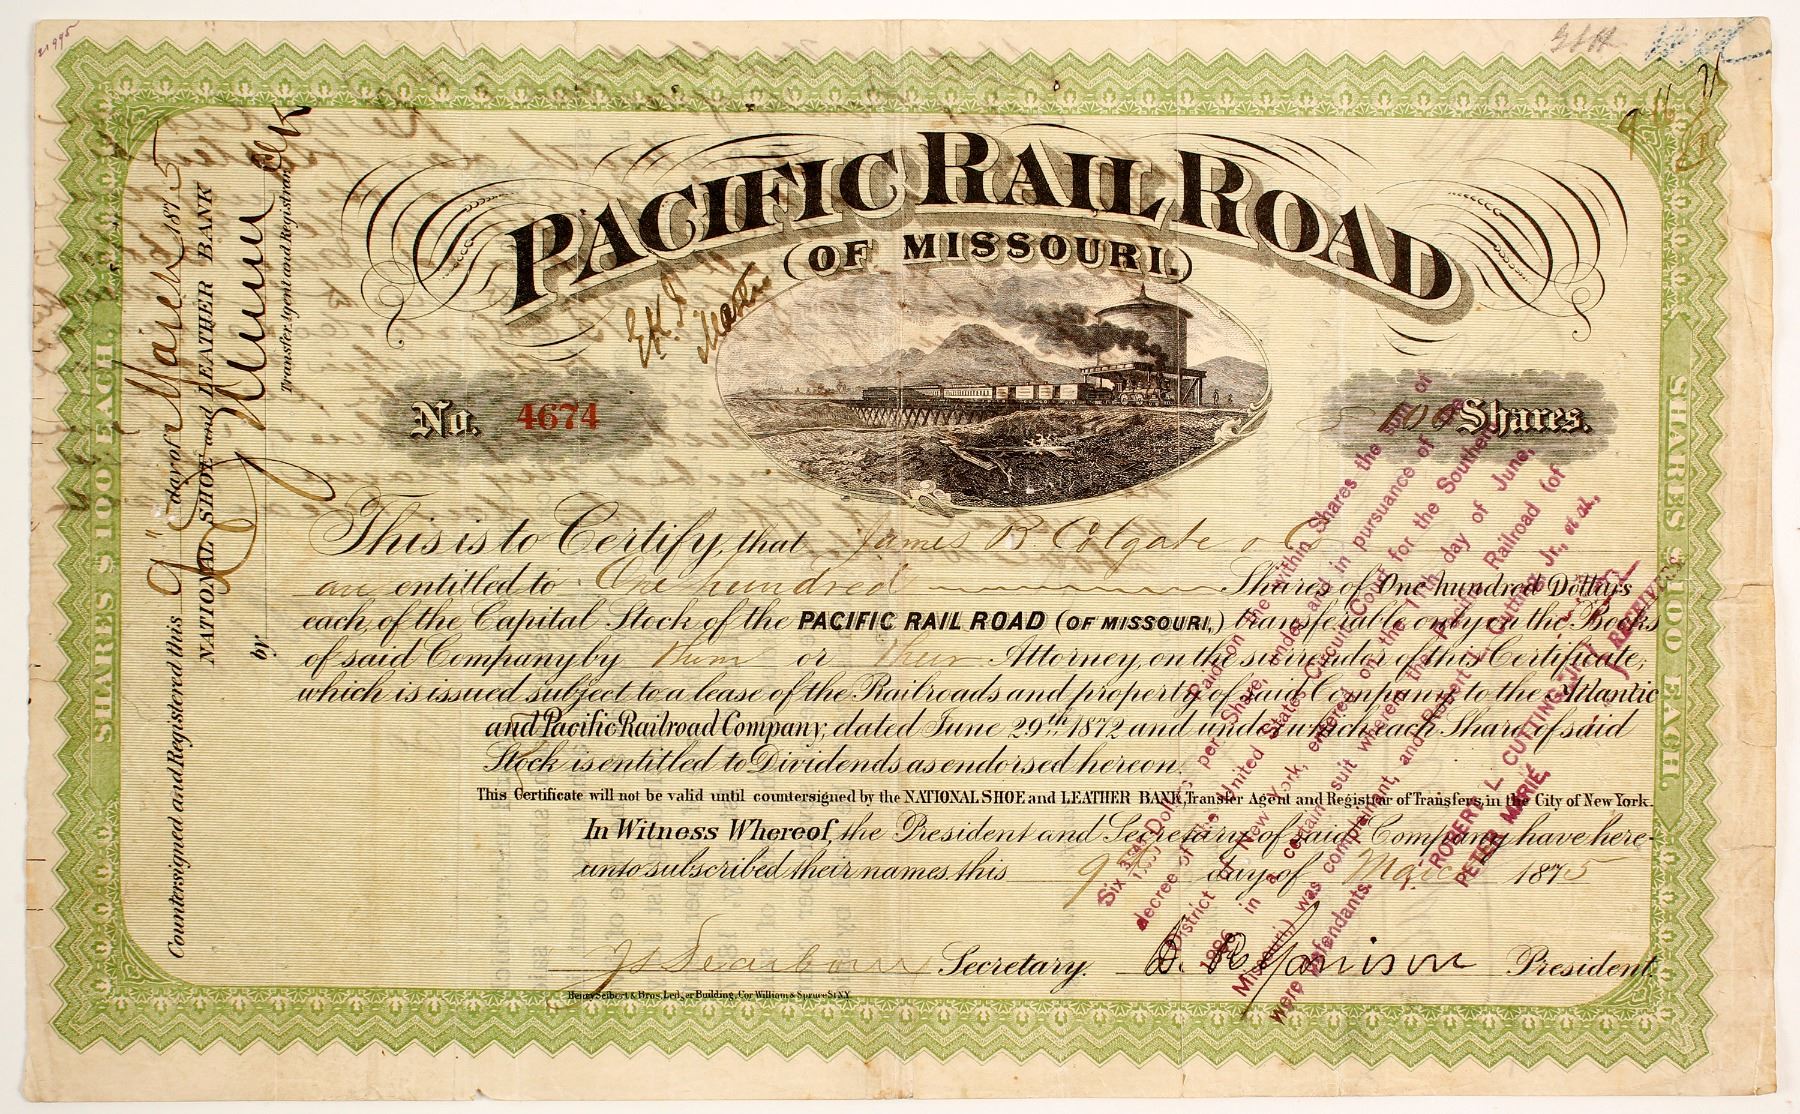 21995
PACIFIC RAIL ROAD
(OF MISSOURI.)
No. 4674
100 Shares.
This is to Certify, that James B Colgate & Co
are entitled to One hundred Shares of One hundred Dollars
each, of the Capital Stock of the PACIFIC RAIL ROAD (OF MISSOURI,) transferable only on the Books
of said Company by them or their Attorney, on the surrender of this Certificate;
which is issued subject to a lease of the Railroads and property of said Company to the Atlantic
and Pacific Railroad Company, dated June 29th 1872 and under which each Share of said
Stock is entitled to Dividends as endorsed hereon.
This Certificate will not be valid until countersigned by the NATIONAL SHOE and LEATHER BANK, Transfer Agent and Registrar of Transfers, in the City of New York.
In Witness Whereof, the President and Secretary of said Company have here-
unto subscribed their names this 9th day of March 1875
Secretary. President.
Henry Seibert & Bros. Ledger Building, Cor William & Spruce St N.Y.
SHARES $100 EACH.
Countersigned and Registered this 9" day of March 1875
NATIONAL SHOE and LEATHER BANK
by
Transfer Agent and Registrar
SHARES $100 EACH.
Paid on the within Shares the sum of
Six 345/1,000 Dollars per Share, under and in pursuance of a
decree of the United States Circuit Court for the Southern
District of New York, entered on the 17th day of June,
1886, in a certain suit wherein the Pacific Railroad (of
Missouri) was complainant, and Robert L. Cutting Jr., et al.,
were defendants.
ROBERT L. CUTTING, Jr.
PETER MARIE,
RECEIVERS